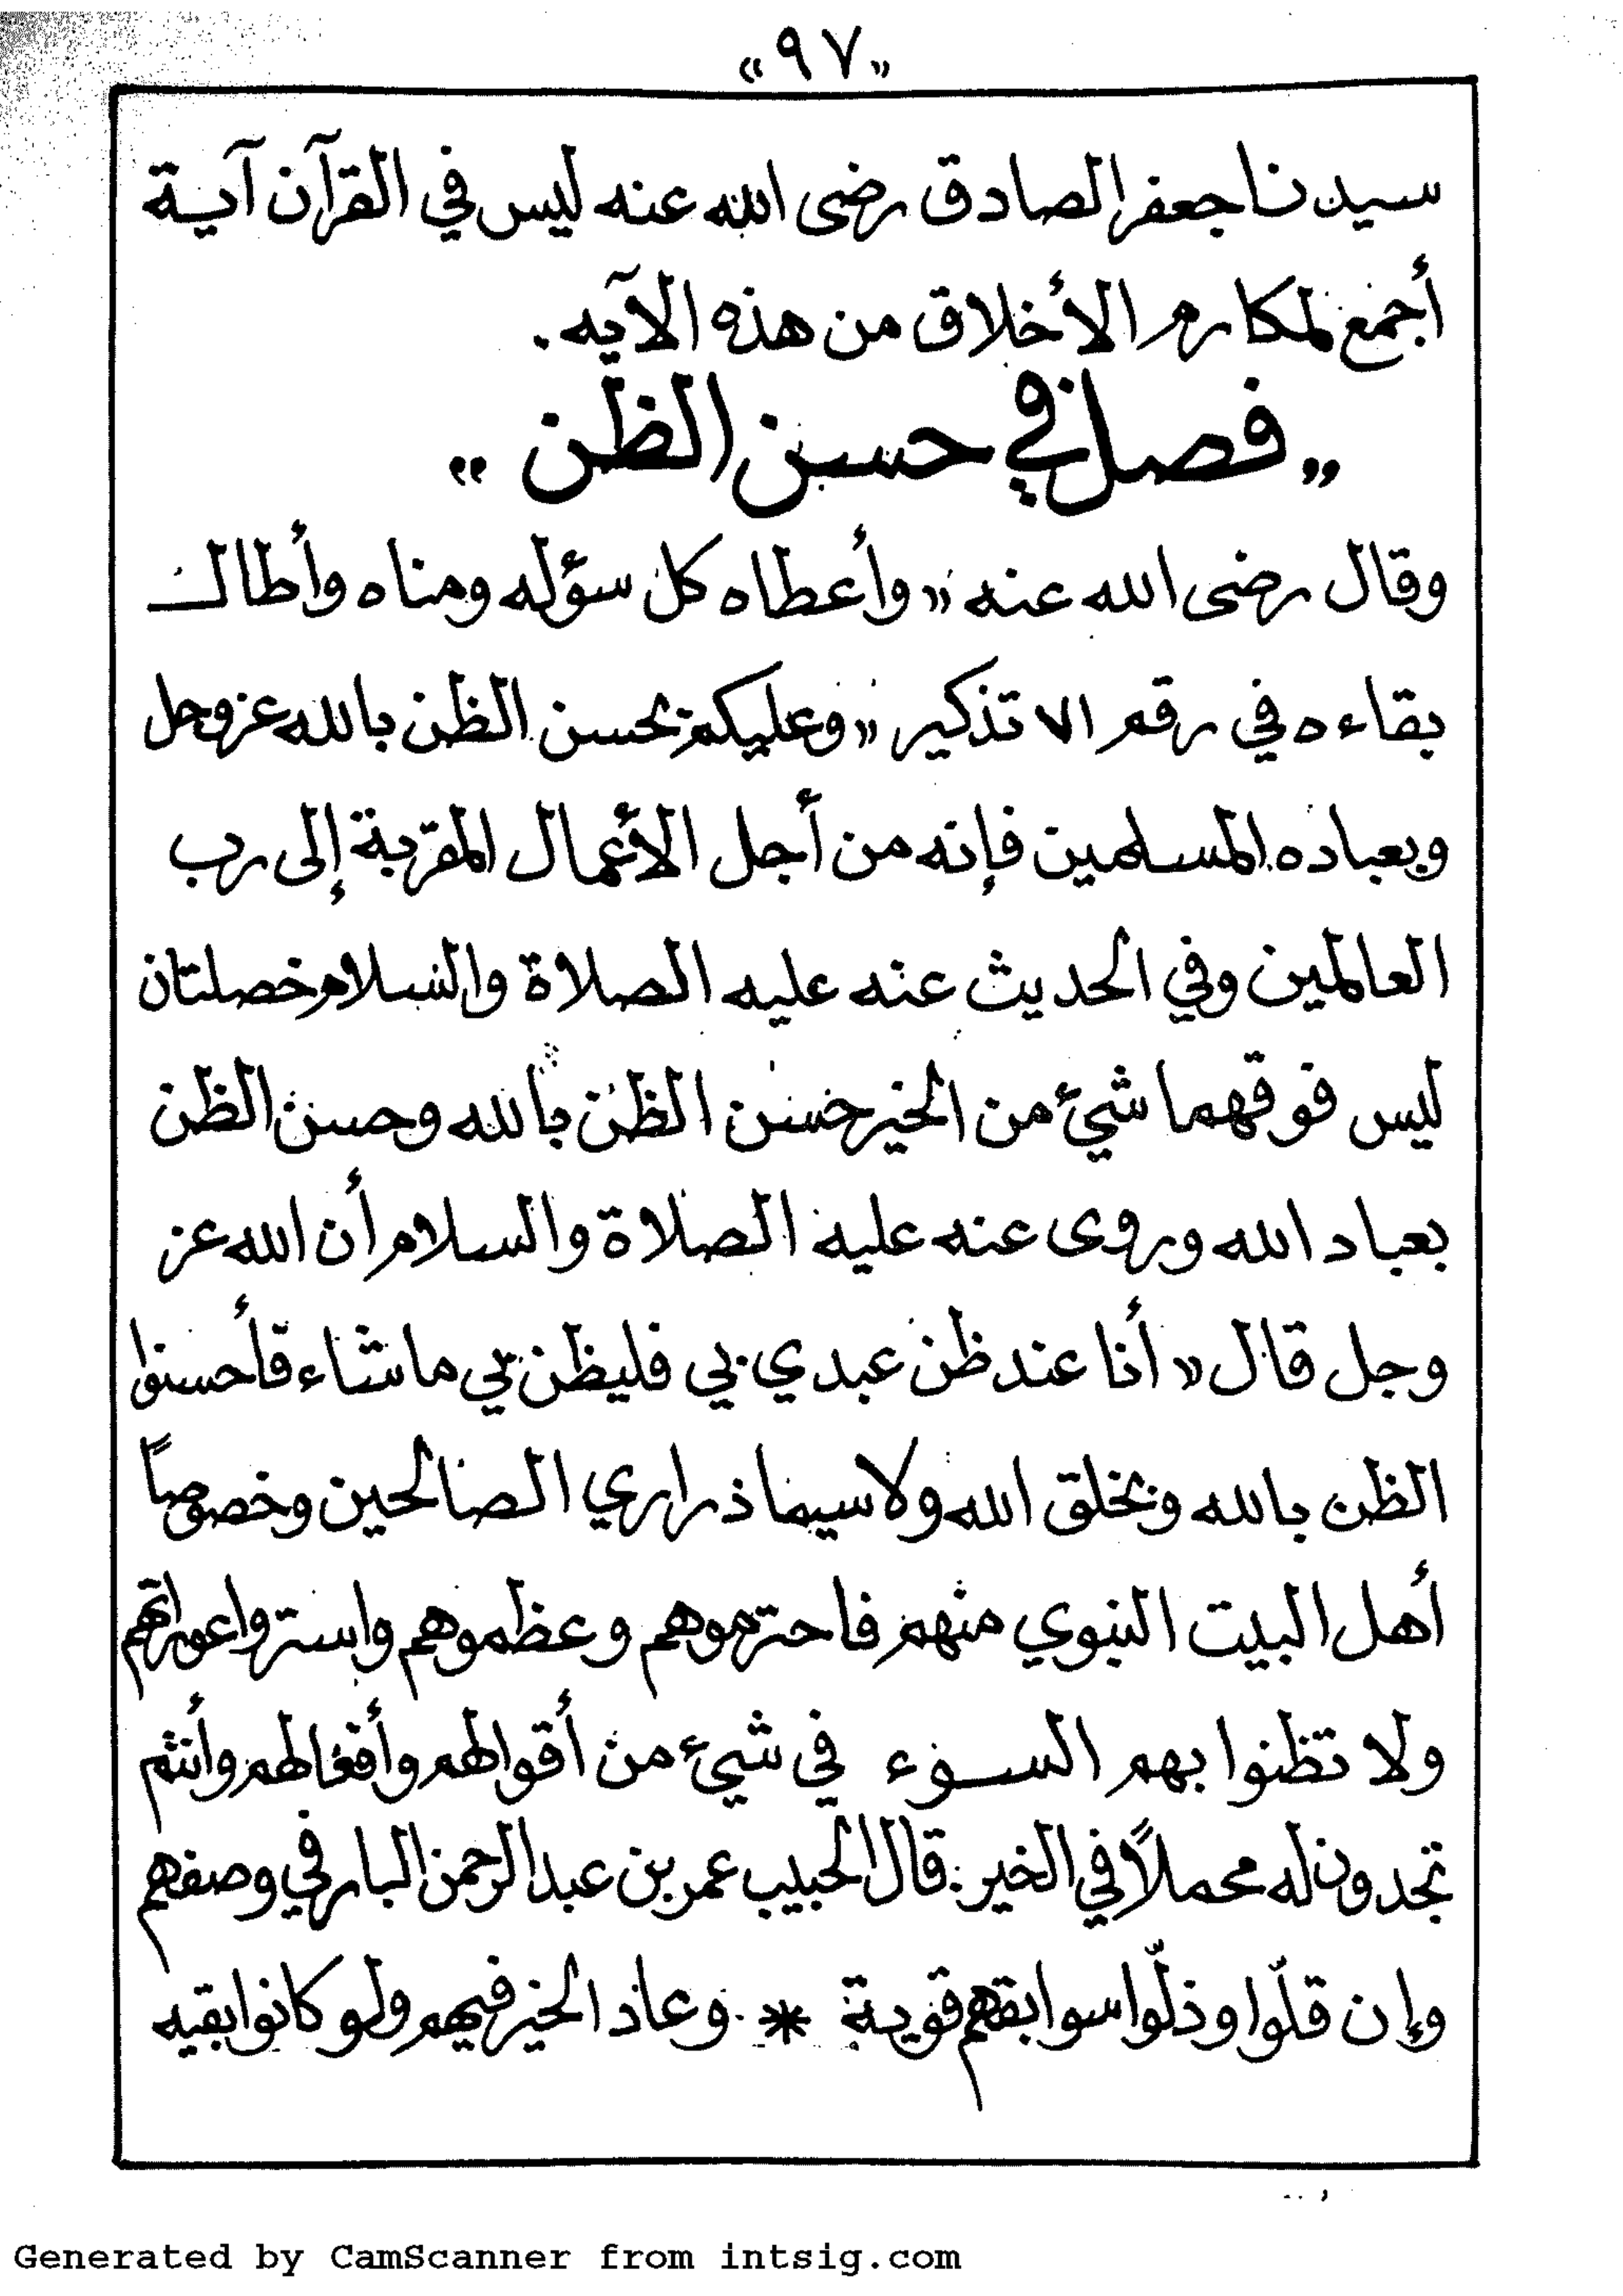 «٩٧»
سيدنا جعفر الصادق رضى الله عنه ليس في القرآن آية
أجمع لمكارم الأخلاق من هذه الآيه .
„ فصل في حسن الظن “
وقال رضى الله عنه «وأعطاه كل سؤله ومناه وأطال
بقاءه في رقم الا تذكير «وعليكم بحسن الظن بالله عز وجل
وبعباده المسلمين فإنه من أجل الأعمال المقربة إلى رب
العالمين وفي الحديث عنه عليه الصلاة والسلام خصلتان
ليس فوقهما شيء من الخير حسن الظن بالله وحسن الظن
بعباد الله وروى عنه عليه الصلاة والسلام أن الله عز
وجل قال «أنا عند ظن عبدي بي فليظن بي ما شاء فأحسنوا
الظن بالله وبخلق الله ولا سيما ذراري الصالحين وخصوصاً
أهل البيت النبوي منهم فاحترموهم وعظموهم واستروا عوراتهم
ولا تظنوا بهم السوء في شيء من أقوالهم وأفعالهم وأنتم
تجدون له محملاً في الخير . قال الحبيب عمر بن عبد الرحمن البار في وصفهم
وإن قلّوا وذلّوا سوابقهم قوية * وعاد الخير فيهم ولو كانوا بقيه
Generated by CamScanner from intsig.com